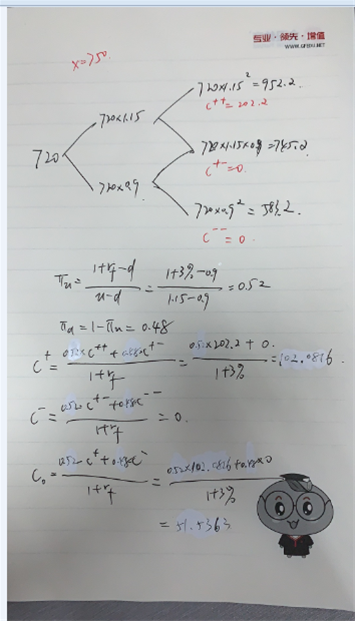 专业·领先·增值
WWW.GFEDU.NET
X=750
720×1.15² = 952.2.
C⁺⁺ = 202.2
720×1.15
720
720×1.15×0.9 = 745.2
C⁺⁻ = 0.
720×0.9
720×0.9² = 583.2
C⁻⁻ = 0.
πu = (1+rf−d)/(u−d) = (1+3%−0.9)/(1.15−0.9) = 0.52
πd = 1−πu = 0.48
C⁺ = (0.52×C⁺⁺ + 0.48×C⁺⁻)/(1+rf) = (0.52×202.2 + 0.)/(1+3%) = 102.0816.
C⁻ = (0.52 C⁺⁻ + 0.48 C⁻⁻)/(1+rf) = 0.
C₀ = (0.52 C⁺ + 0.48 C⁻)/(1+rf) = (0.52×102.0816 + 0.48×0)/(1+3%)
= 51.5363